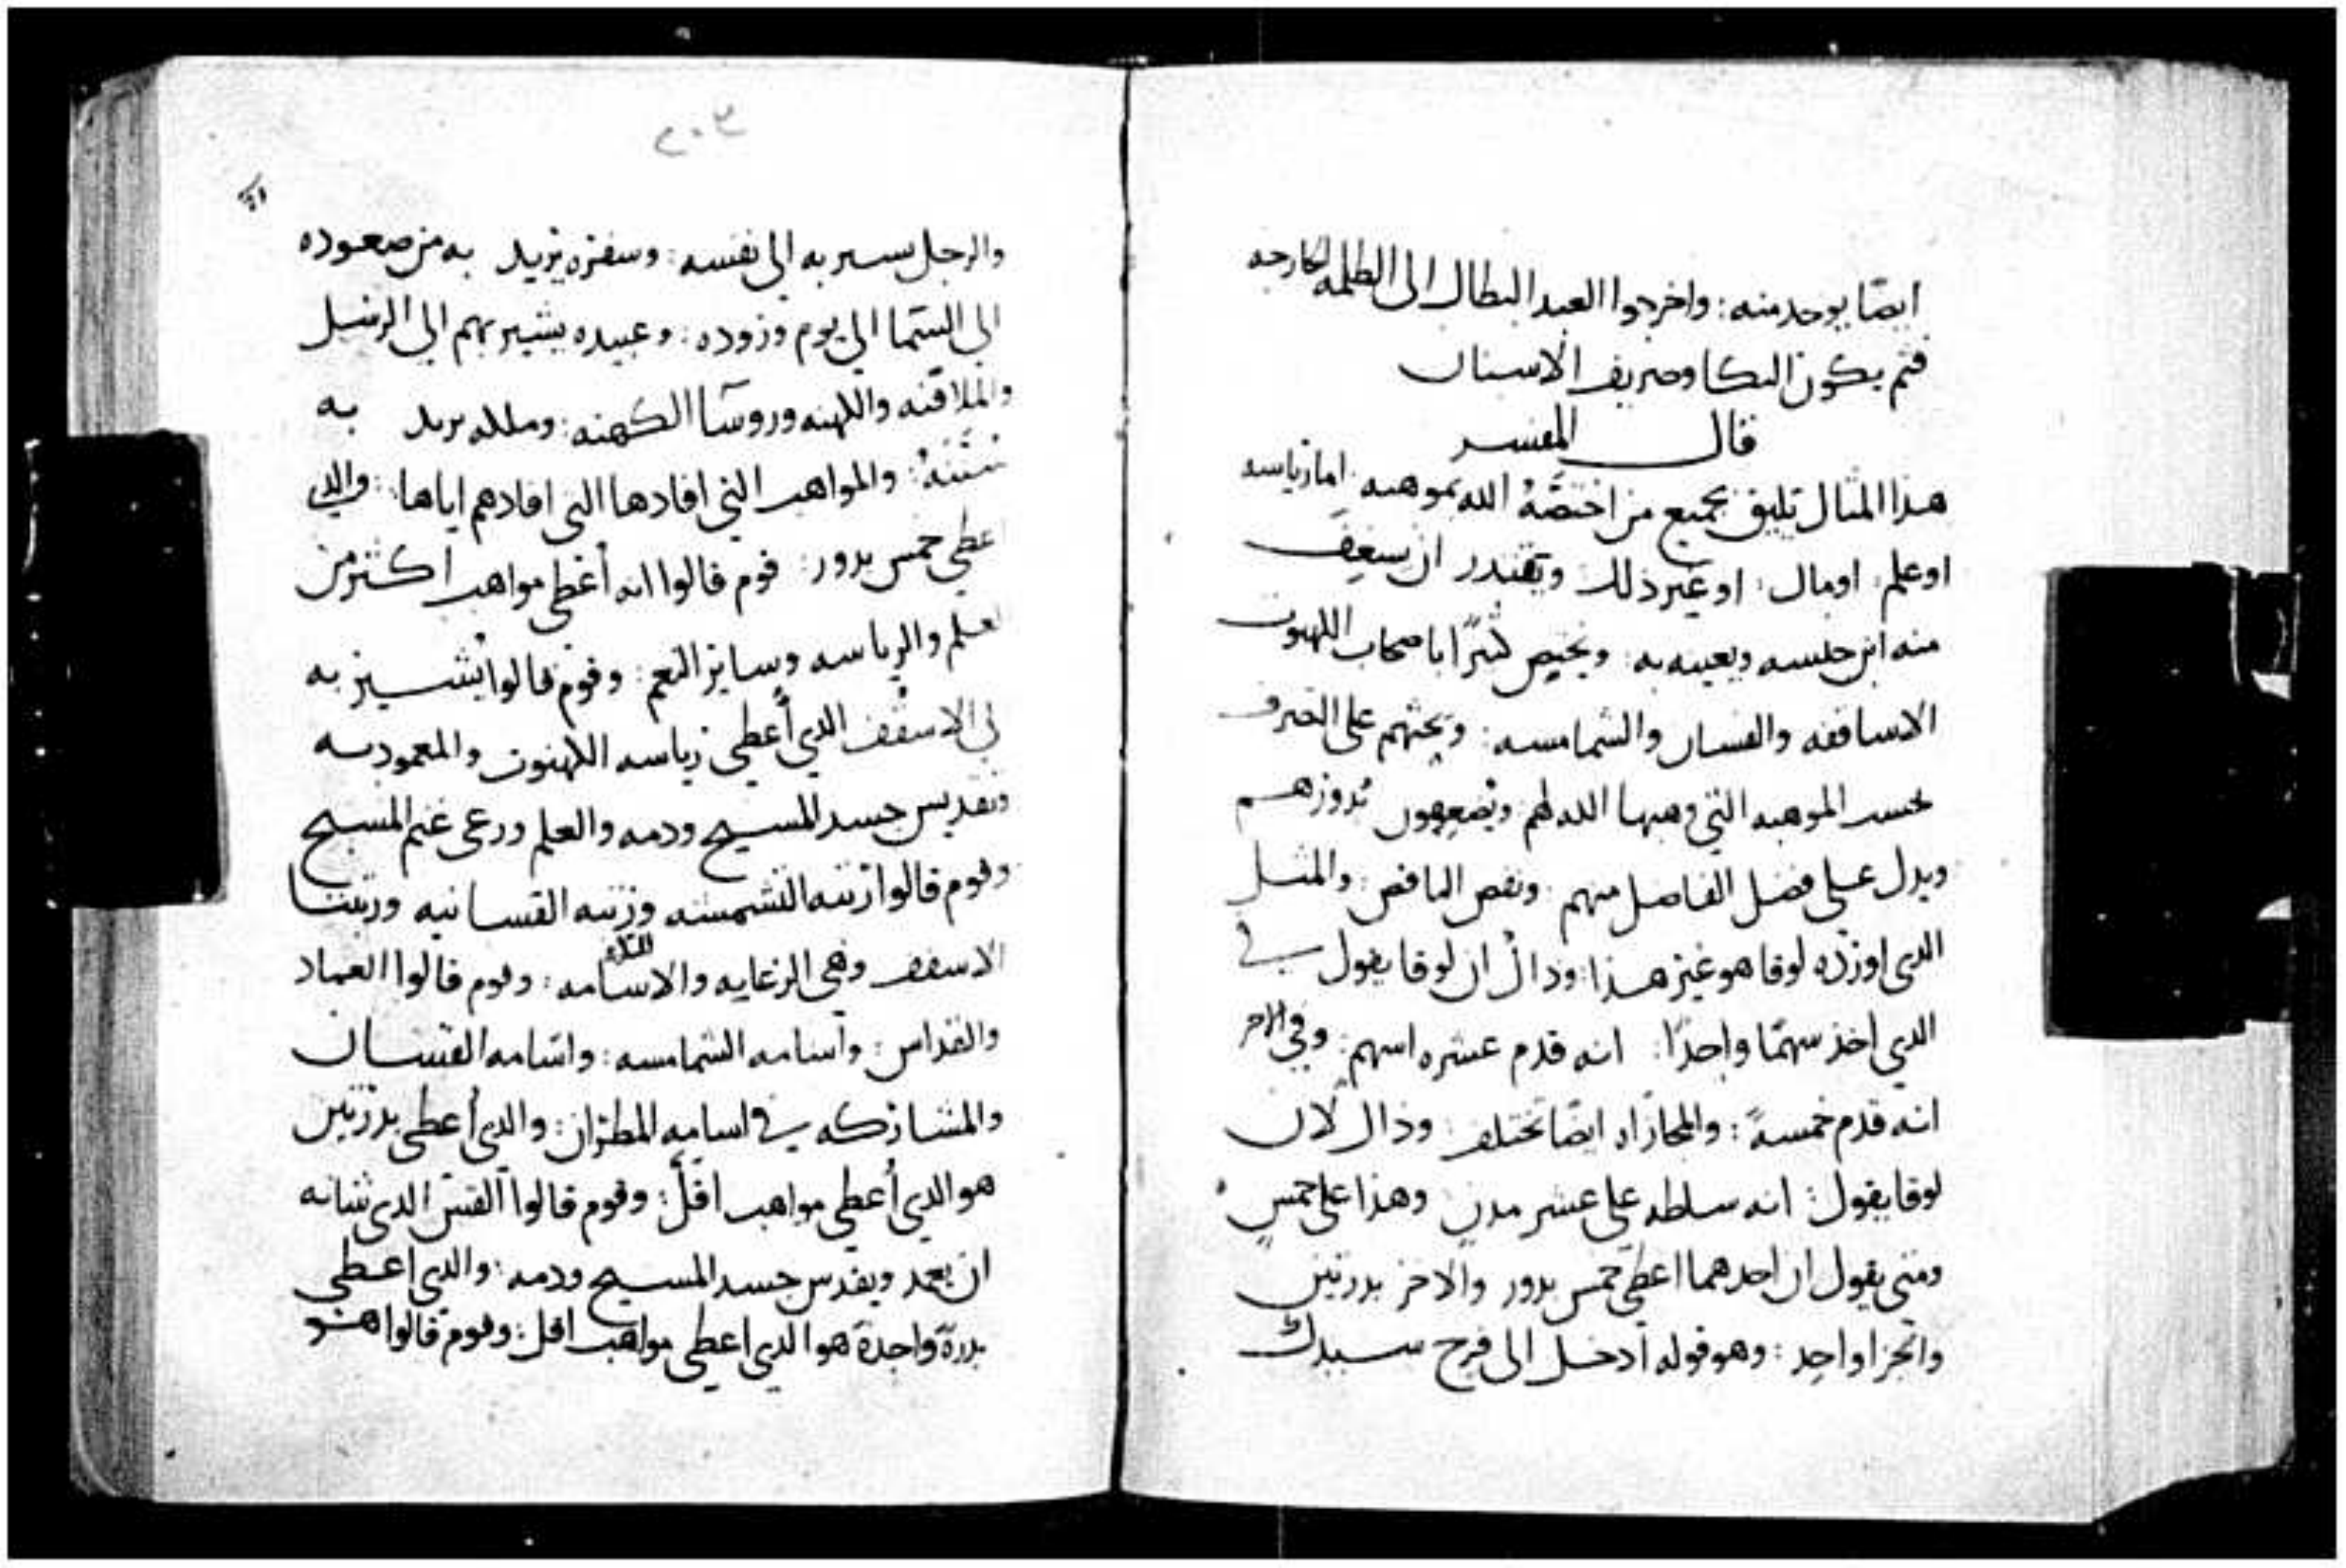 ايضًا يوخد منه : واخرجوا العبد البطال الى الظلمه الخارجه
فثم يكون البكا وصريف الاسنان
قال المفسر
هذا المثال يليق بجميع من اختصَّهُ الله بموهبه اما رياسه
او علم : او مال : او غير ذلك ويقتدر ان يسعف
منه ابن جنسه ويعينه به : ويخص كثيرًا باصحاب الكهنوت
الاساقفه والقسان والشمامسه : ويحثهم على التصرف
بحسب الموهبه التي وهبها الله لهم ويضعفون بدورهم
ويدل على فضل الفاضل منهم : ونقص الناقص : والمثل
الدي اورده لوقا هو غير هذا : وذاك ان لوقا يقول في
الدي اخذ سهمًا واحدًا : انه قدم عشره اسهم : وفي الاخر
انه قدم خمسةً : والمجازاه ايضًا تختلف : وذاك لان
لوقا يقول : انه سلطه على عشر مدن وهذا على خمس
ومتى يقول ان احدهما اعطي خمس بدور والاخر بدرتين
والجزا واحد : وهو قوله ادخل الى فرح سيدك
٢٠٣
والرجل يشير به الى نفسه : وسفره يريد به من صعوده
الى السما الى يوم وروده : وعبيده يشير بهم الى الرسل
والملافنه والكهنه وروسا الكهنه : وماله يريد به
سُننهُ : والمواهب التي افادها التي افادهم اياها : والدي
اعطي خمس بدور : قوم قالوا انه أعطي مواهب اكثر من
العلم والرياسه وساير النعم : وقوم قالوا يشير به
الى الاسقف الدي أُعطي رياسه الكهنوت والمعموديه
وتقديس جسد المسيح ودمه والعلم ورعي غنم المسيح
وقوم قالوا رتبه الشمسنه ورتبه القسانيه ورتبتا
الاسقف وهي الرعايه والاسامه : وقوم قالوا العماد
والقداس : واسامه الشمامسه : واسامه القسان
والمشاركه في اسامه المطران : والدي أعطي بدرتين
هو الدي أُعطي مواهب اقل : وقوم قالوا القس الدي شانه
ان يعمد ويقدس جسد المسيح ودمه : والدي اعطي
بدرة واحدة هو الدي اعطي مواهب اقل : وقوم قالوا هو